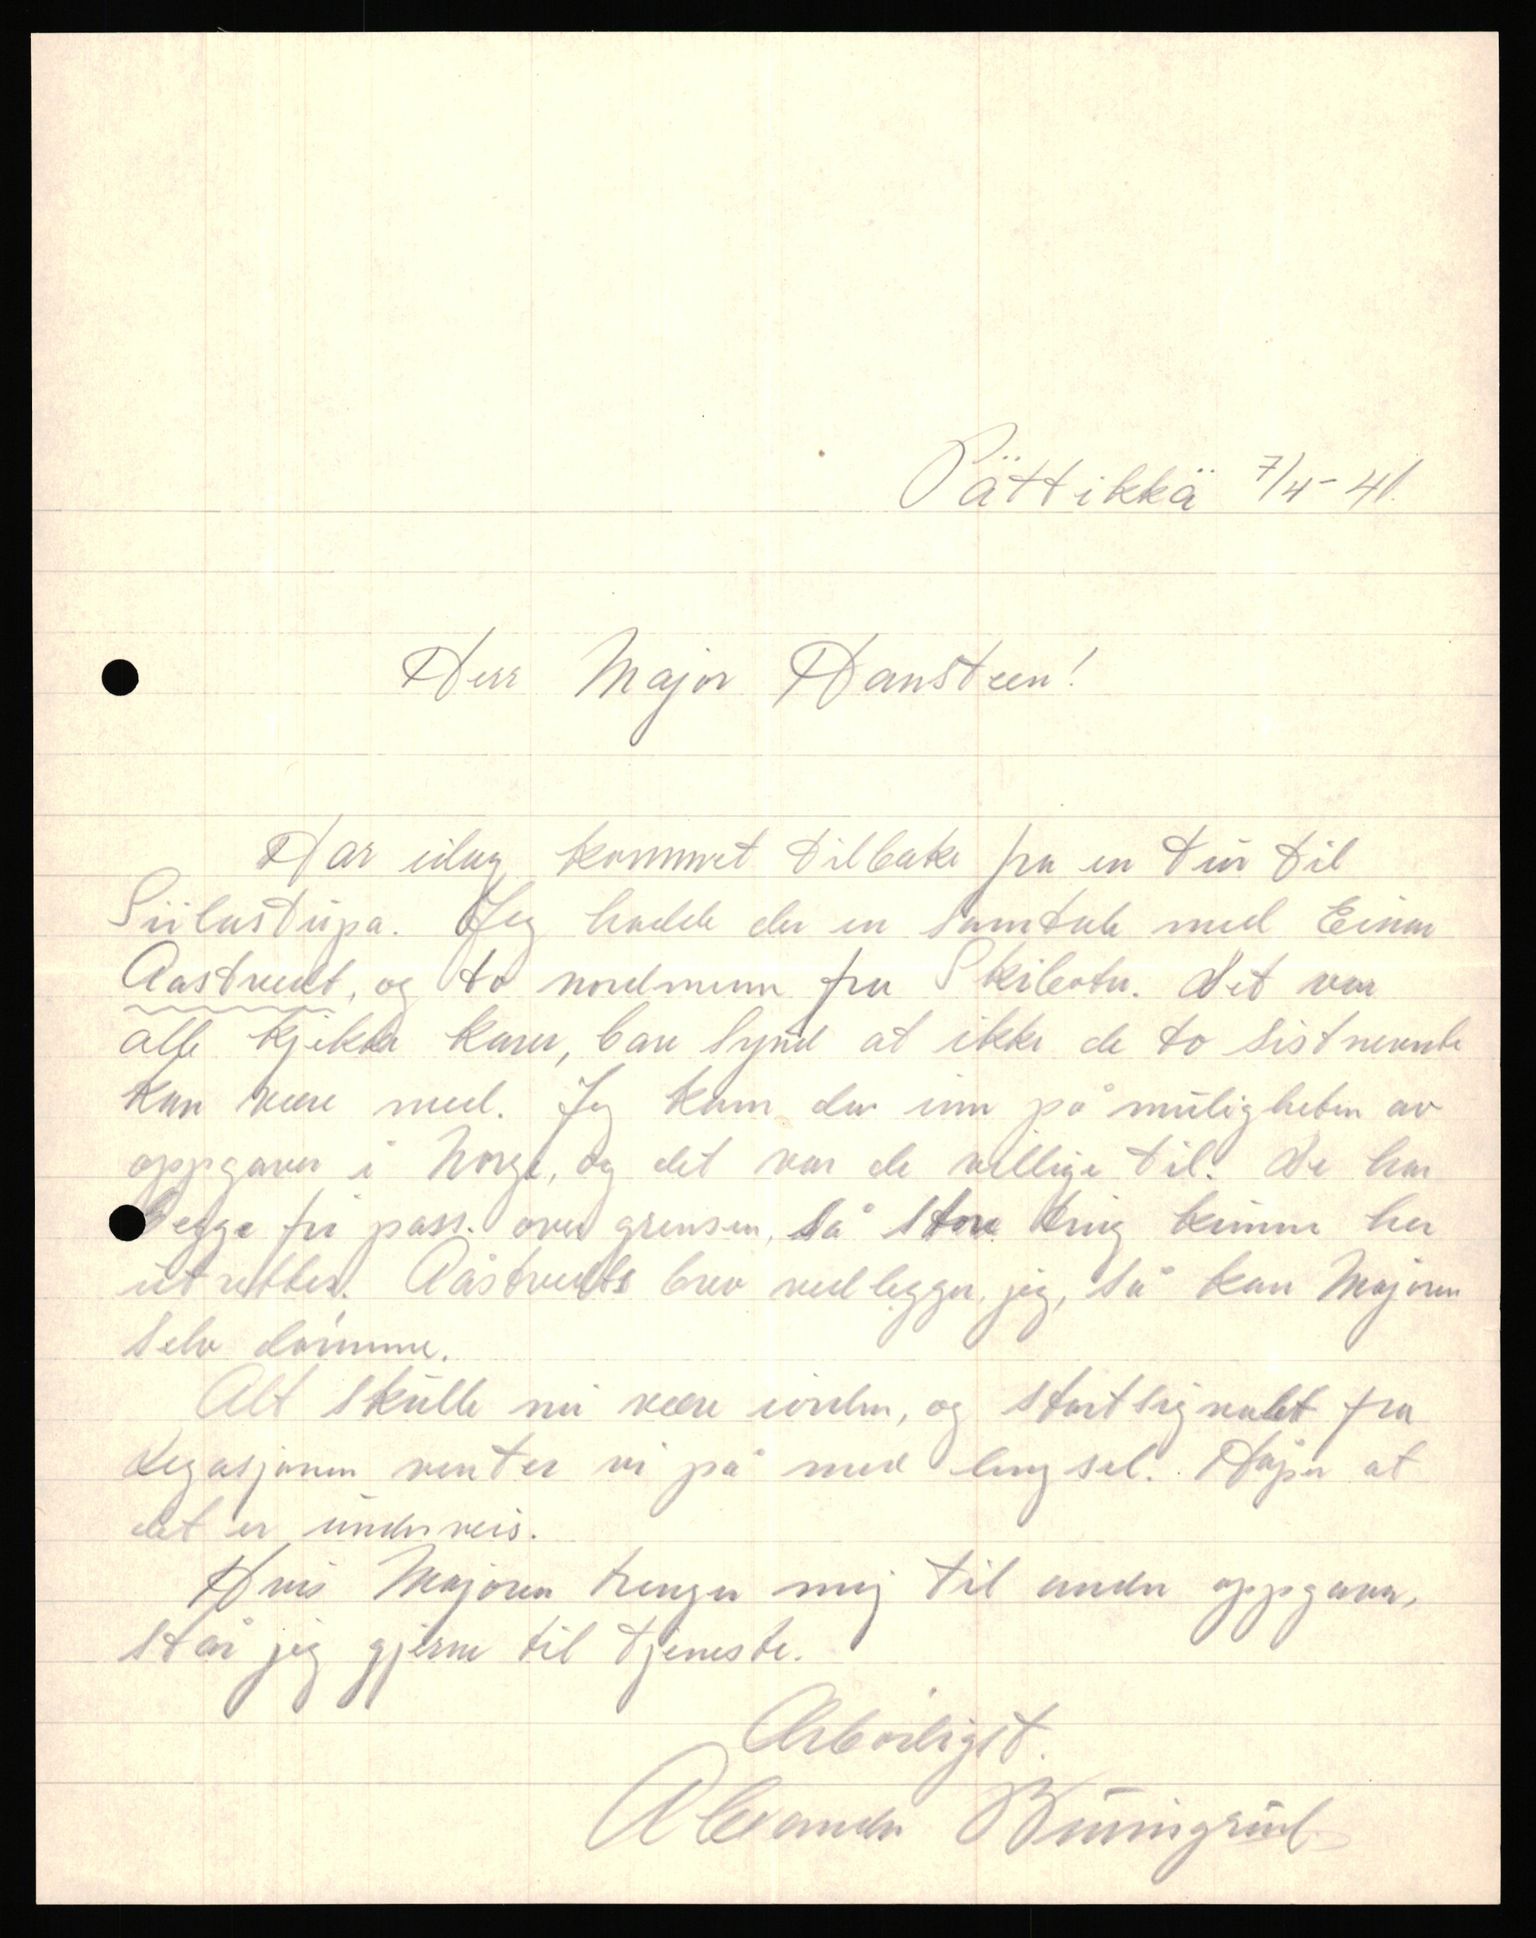 Pättikkä 7/4-41.
Herr Major Hansteen!
Har idag kommet tilbake fra en tur til
Siilastupa. Jeg hadde der en samtale med Einar
Aastveit, og to nordmenn fra Skibotn. Det var
alle kjekke karer, bare synd at ikke de to sistnevnte
kan være med. Jeg kom der inn på muligheten av
oppgaver i Norge, og det var de villige til. De har
begge fri pass. over grensen, så store ting kunne her
utrettes. Aåstveits brev vedlegger jeg, så kan Majoren
selv dømme.
Alt skulle nu være iorden, og startsignalet fra
Legasjonen venter vi på med lengsel. Håper at
det er underveis.
Hvis Majoren trenger mig til andre oppgaver,
står jeg gjerne til tjeneste.
Ærbødigst.
Alexander